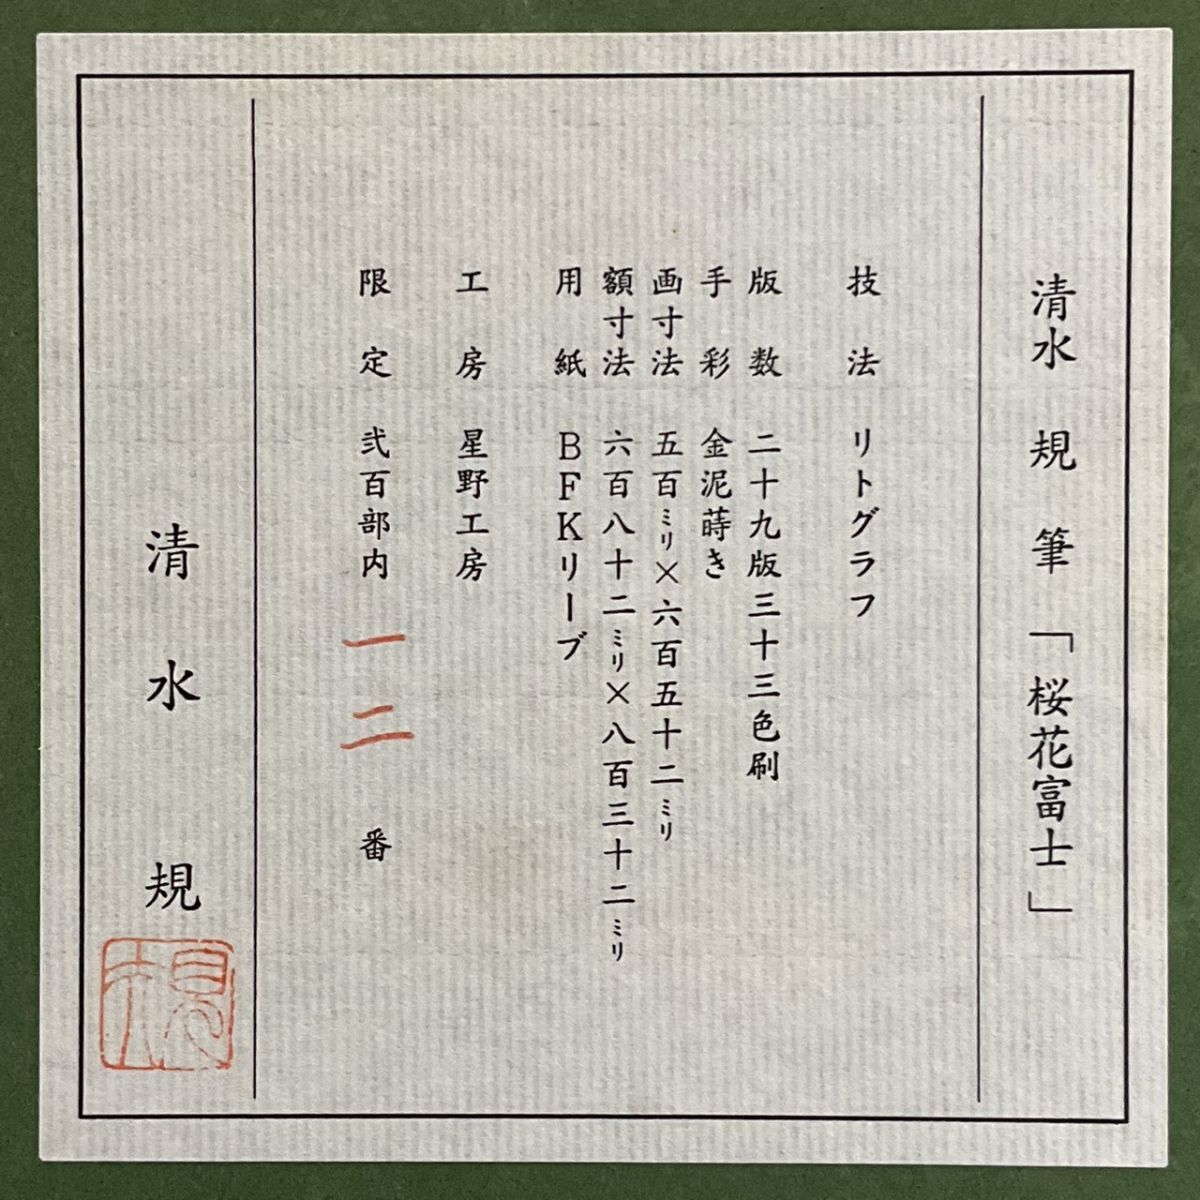 清水 規 筆 「桜花富士」
技法 リトグラフ
版数 二十九版三十三色刷
手彩 金泥蒔き
画寸法 五百ミリ×六百五十二ミリ
額寸法 六百八十二ミリ×八百三十二ミリ
用紙 BFKリーブ
工房 星野工房
限定 弐百部内 一二 番
清水 規
規